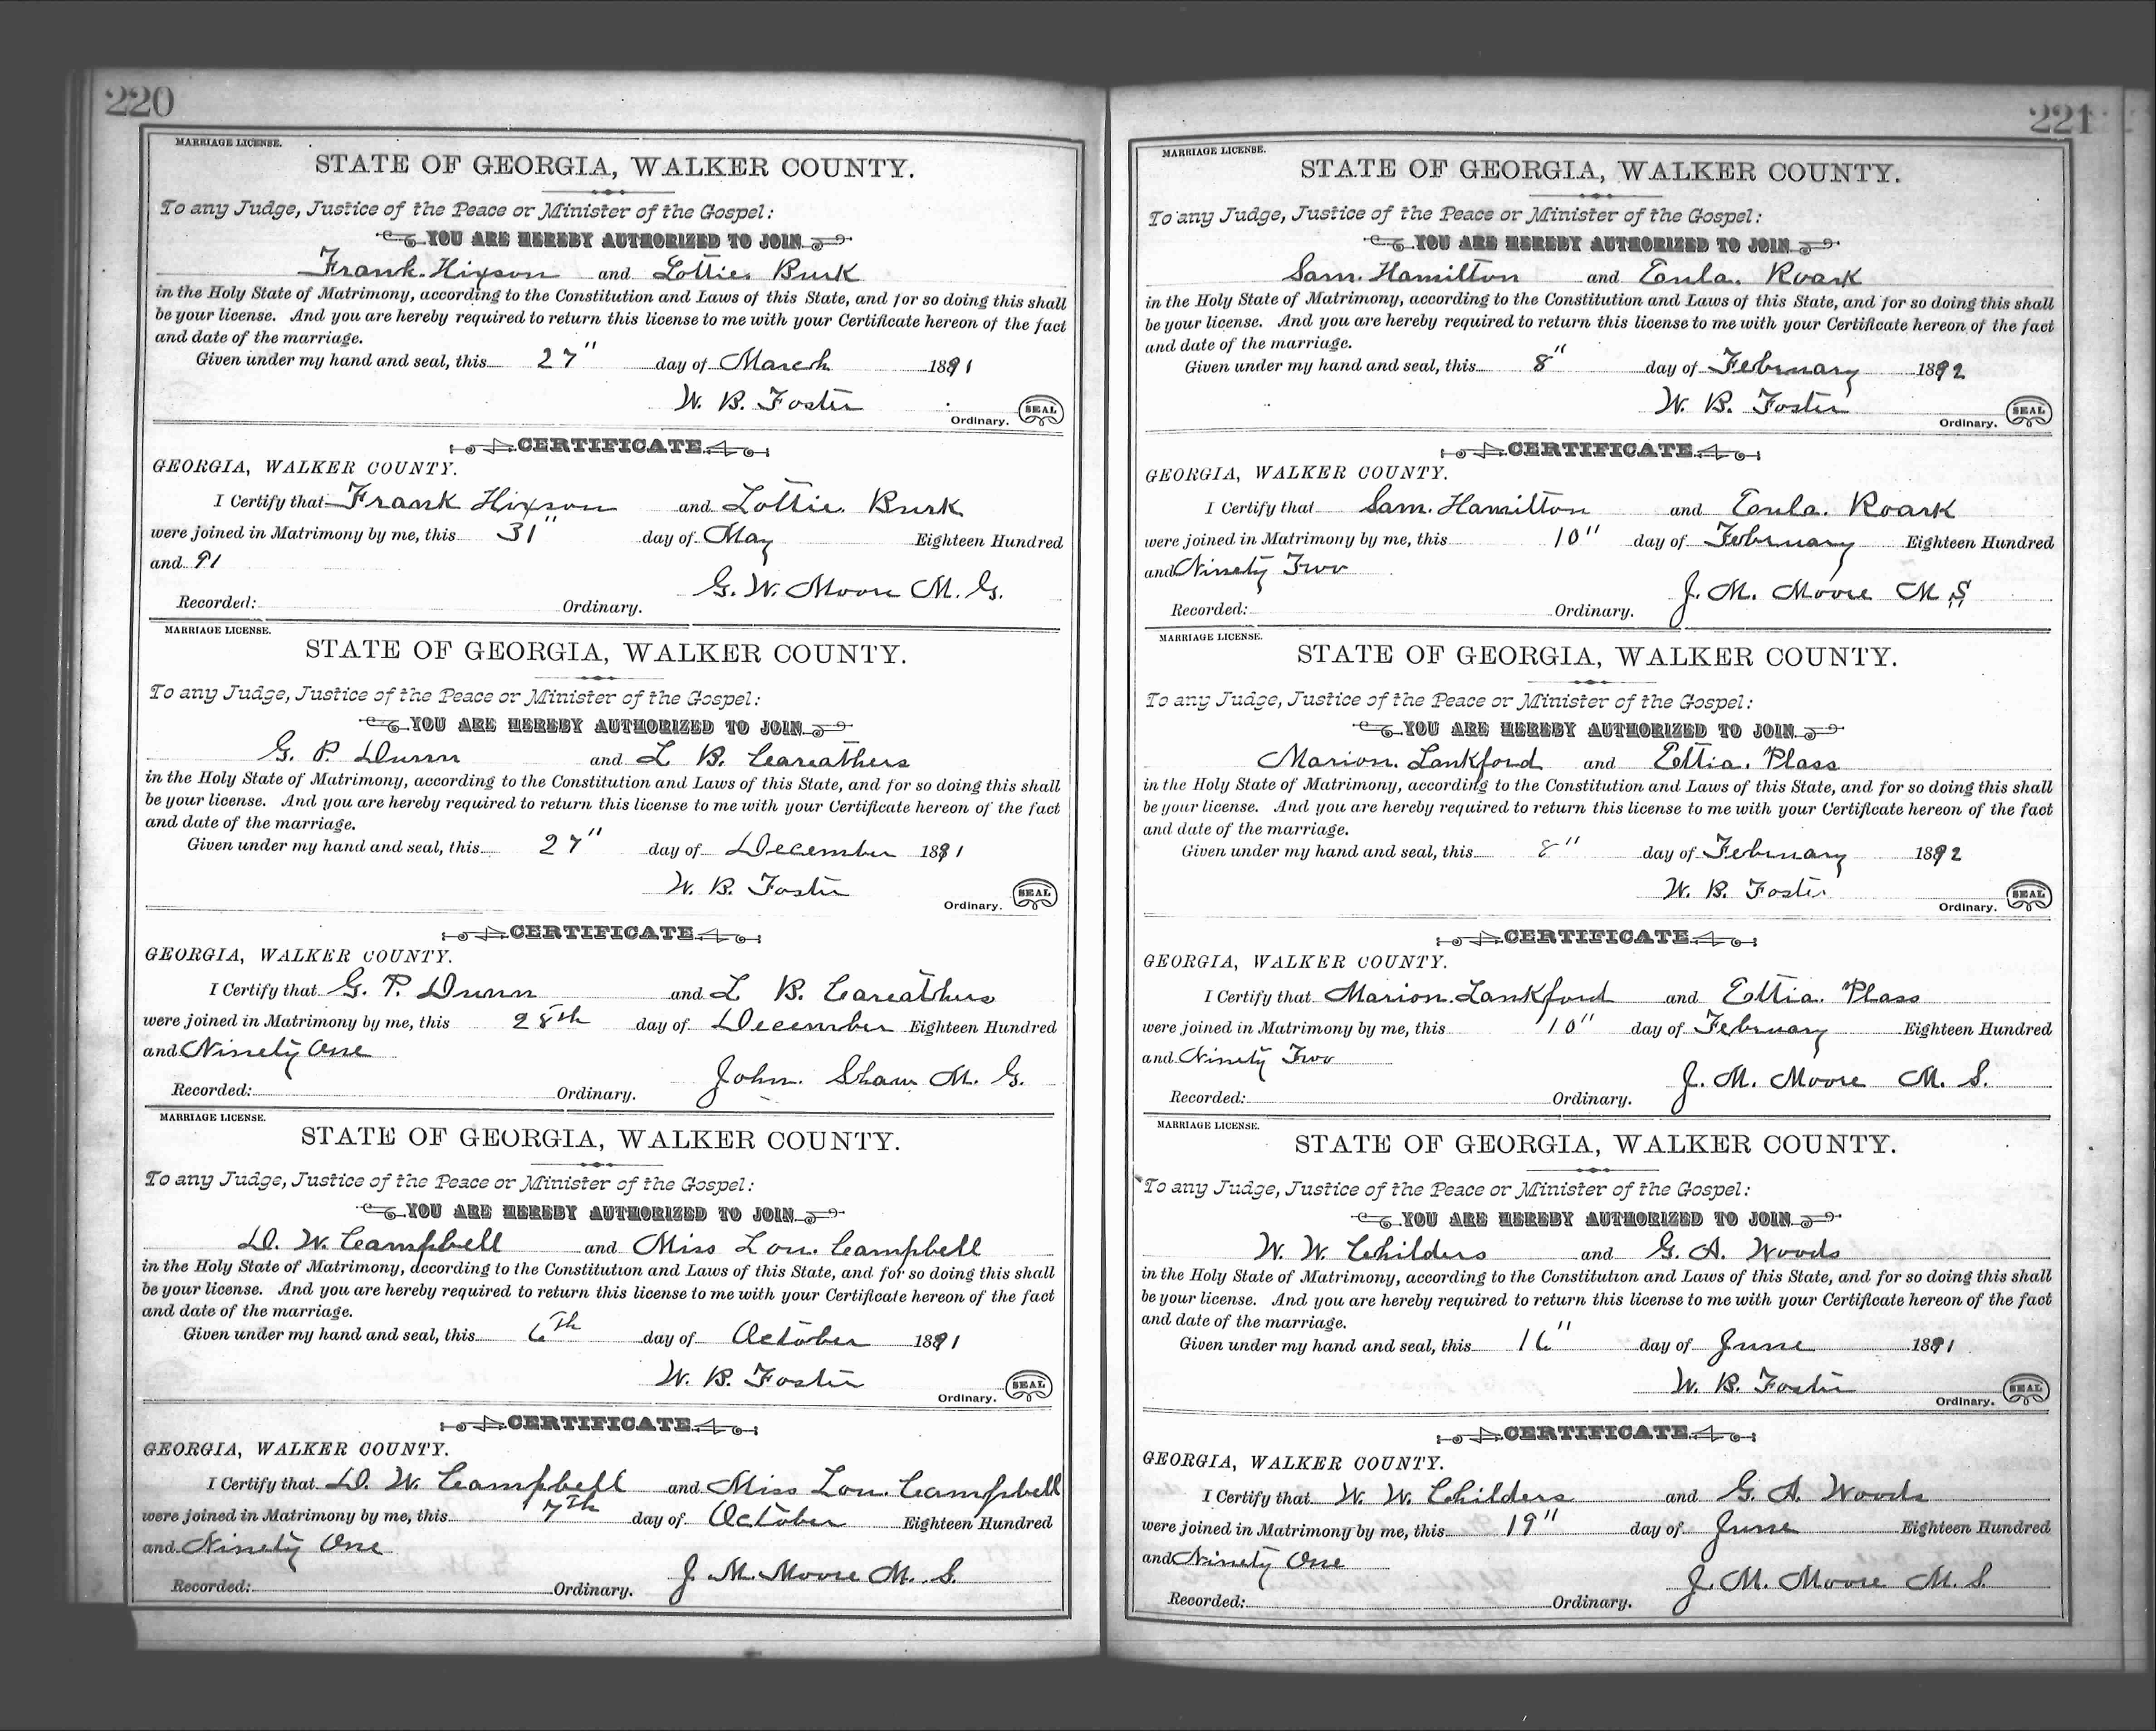 220
MARRIAGE LICENSE.
STATE OF GEORGIA, WALKER COUNTY.
To any Judge, Justice of the Peace or Minister of the Gospel:
YOU ARE HEREBY AUTHORIZED TO JOIN
Frank Hixson and Lottie Burk
in the Holy State of Matrimony, according to the Constitution and Laws of this State, and for so doing this shall
be your license. And you are hereby required to return this license to me with your Certificate hereon of the fact
and date of the marriage.
Given under my hand and seal, this 27" day of March 1891
W. B. Foster
Ordinary. SEAL
CERTIFICATE
GEORGIA, WALKER COUNTY.
I Certify that Frank Hixson and Lottie Burk
were joined in Matrimony by me, this 31" day of May Eighteen Hundred
and 91
G. W. Moore M. G.
Recorded: Ordinary.
MARRIAGE LICENSE.
STATE OF GEORGIA, WALKER COUNTY.
To any Judge, Justice of the Peace or Minister of the Gospel:
YOU ARE HEREBY AUTHORIZED TO JOIN
G. P. Dunn and L B. Careathers
in the Holy State of Matrimony, according to the Constitution and Laws of this State, and for so doing this shall
be your license. And you are hereby required to return this license to me with your Certificate hereon of the fact
and date of the marriage.
Given under my hand and seal, this 27" day of December 1891
W. B. Foster
Ordinary. SEAL
CERTIFICATE
GEORGIA, WALKER COUNTY.
I Certify that G. P. Dunn and L B. Careathers
were joined in Matrimony by me, this 28th day of December Eighteen Hundred
and Ninety One
John. Shaw M. G.
Recorded: Ordinary.
MARRIAGE LICENSE.
STATE OF GEORGIA, WALKER COUNTY.
To any Judge, Justice of the Peace or Minister of the Gospel:
YOU ARE HEREBY AUTHORIZED TO JOIN
D. W. Campbell and Miss Lou. Campbell
in the Holy State of Matrimony, according to the Constitution and Laws of this State, and for so doing this shall
be your license. And you are hereby required to return this license to me with your Certificate hereon of the fact
and date of the marriage.
Given under my hand and seal, this 6th day of October 1891
W. B. Foster
Ordinary. SEAL
CERTIFICATE
GEORGIA, WALKER COUNTY.
I Certify that D. W. Campbell and Miss Lou. Campbell
were joined in Matrimony by me, this 7th day of October Eighteen Hundred
and Ninety One
J. M. Moore M. S.
Recorded: Ordinary.
221
MARRIAGE LICENSE.
STATE OF GEORGIA, WALKER COUNTY.
To any Judge, Justice of the Peace or Minister of the Gospel:
YOU ARE HEREBY AUTHORIZED TO JOIN
Sam. Hamilton and Eula. Roark
in the Holy State of Matrimony, according to the Constitution and Laws of this State, and for so doing this shall
be your license. And you are hereby required to return this license to me with your Certificate hereon of the fact
and date of the marriage.
Given under my hand and seal, this 8" day of February 1892
W. B. Foster
Ordinary. SEAL
CERTIFICATE
GEORGIA, WALKER COUNTY.
I Certify that Sam. Hamilton and Eula. Roark
were joined in Matrimony by me, this 10" day of February Eighteen Hundred
and Ninety Two
J. M. Moore M S
Recorded: Ordinary.
MARRIAGE LICENSE.
STATE OF GEORGIA, WALKER COUNTY.
To any Judge, Justice of the Peace or Minister of the Gospel:
YOU ARE HEREBY AUTHORIZED TO JOIN
Marion. Lankford and Ettia. Plass
in the Holy State of Matrimony, according to the Constitution and Laws of this State, and for so doing this shall
be your license. And you are hereby required to return this license to me with your Certificate hereon of the fact
and date of the marriage.
Given under my hand and seal, this 8" day of February 1892
W. B. Foster
Ordinary. SEAL
CERTIFICATE
GEORGIA, WALKER COUNTY.
I Certify that Marion. Lankford and Ettia. Plass
were joined in Matrimony by me, this 10" day of February Eighteen Hundred
and Ninety Two
J. M. Moore M. S.
Recorded: Ordinary.
MARRIAGE LICENSE.
STATE OF GEORGIA, WALKER COUNTY.
To any Judge, Justice of the Peace or Minister of the Gospel:
YOU ARE HEREBY AUTHORIZED TO JOIN
W. W. Childers and G. A. Woods
in the Holy State of Matrimony, according to the Constitution and Laws of this State, and for so doing this shall
be your license. And you are hereby required to return this license to me with your Certificate hereon of the fact
and date of the marriage.
Given under my hand and seal, this 16" day of June 1891
W. B. Foster
Ordinary. SEAL
CERTIFICATE
GEORGIA, WALKER COUNTY.
I Certify that W. W. Childers and G. A. Woods
were joined in Matrimony by me, this 19" day of June Eighteen Hundred
and Ninety One
J. M. Moore M. S.
Recorded: Ordinary.